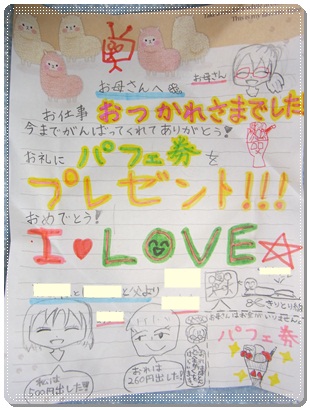 お母さんへ
お母さん
お仕事 おつかれさまでした!
今までがんばってくれてありがとう!
お礼に パフェ券 を
プレゼント!!!
おめでとう!
I ♥ LOVE ☆
と と父より
きりとり線
お母さんはお金がいりません。
パフェ券
私は500円出した!
おれは260円出した!